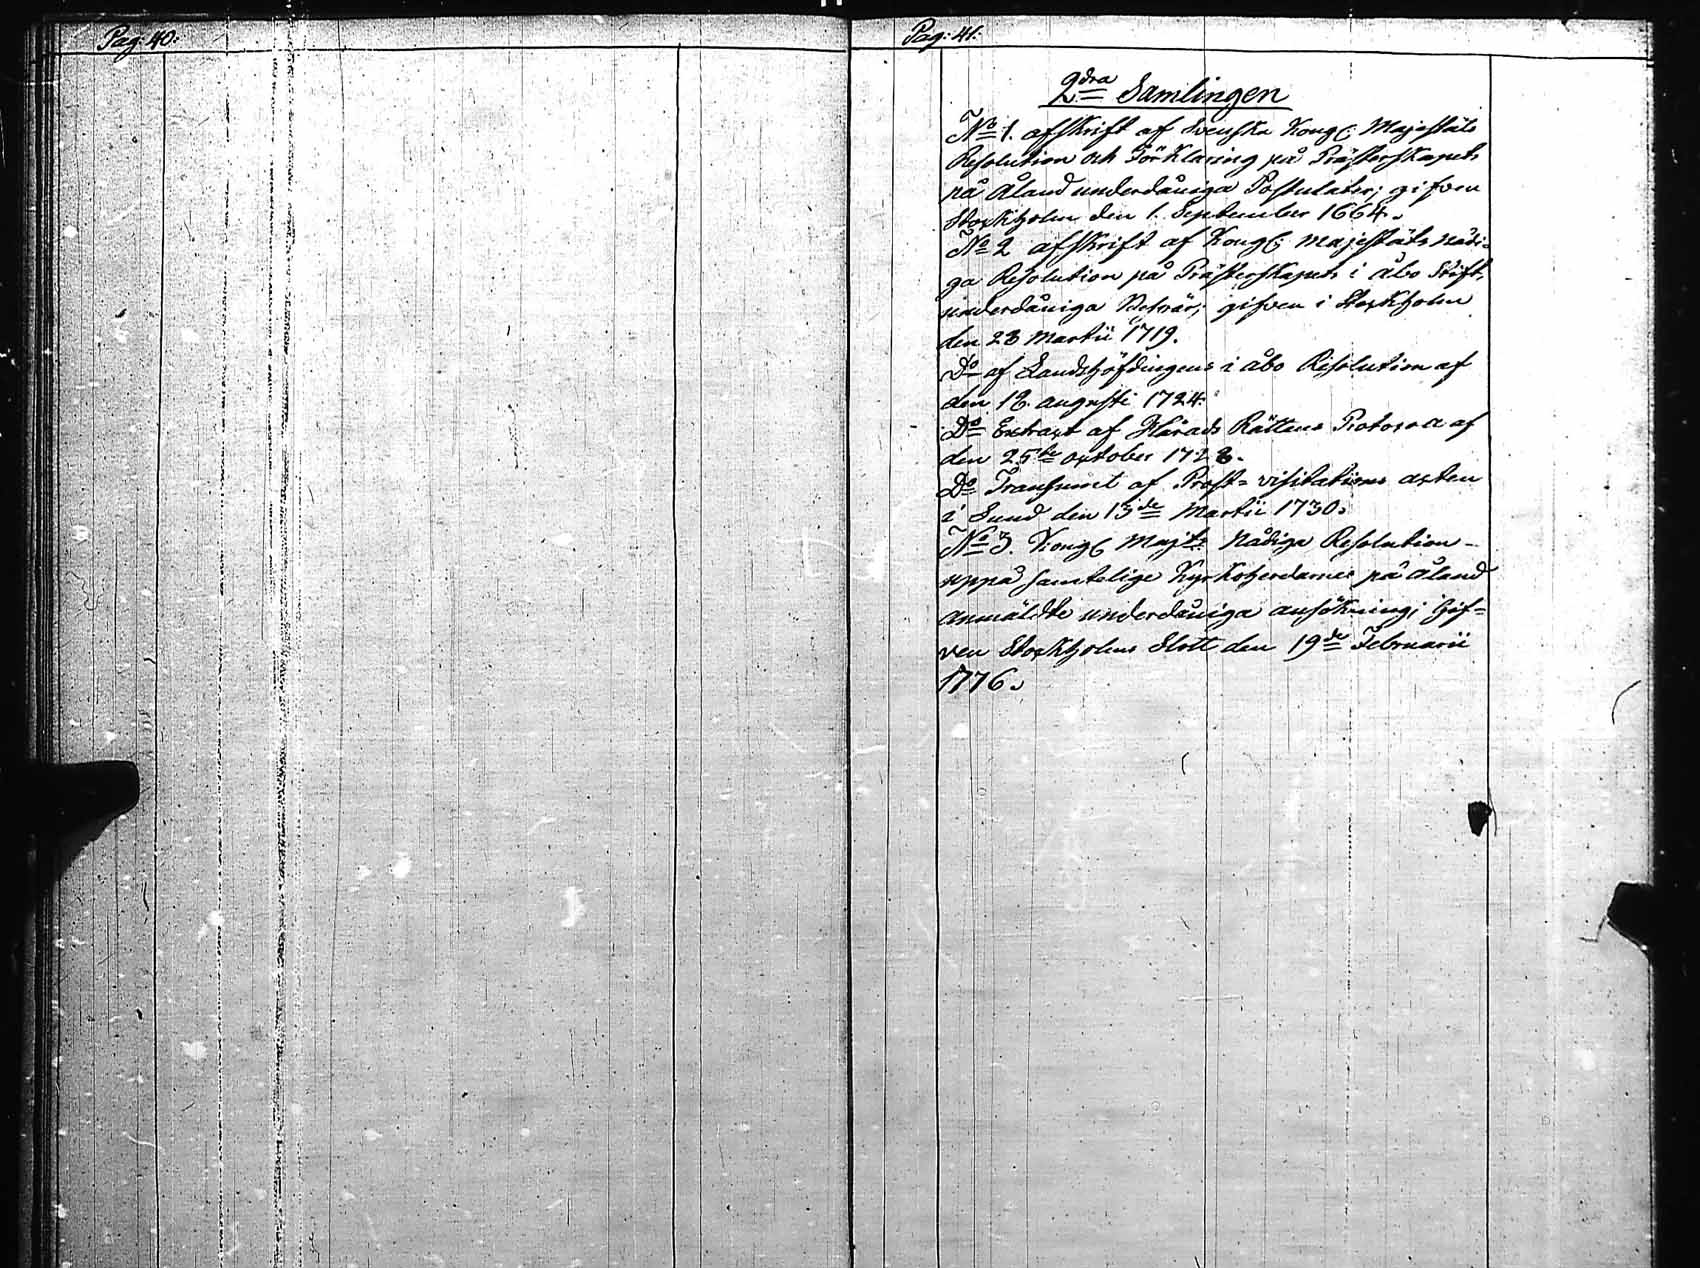 Pag: 40:
Pag: 41:
2dra Samlingen
No 1. afskrift af Svenska Kongl: Majestäts
Resolution och Förklaring på Prästerskapets
på Åland underdåniga Postulater; gifven
Stockholm den 1. September 1664.
No 2 afskrift af Kongl: Majestäts nådi=
ga Resolution på Prästerskapets i Åbo Stift,
underdåniga Besvär; gifven i Stockholm
den 23 Martii 1719.
Do af Landshöfdingens i Åbo Resolution af
den 18. augusti 1724:
Do Extract af Härads Rättens Protocoll af
den 25te october 1728.
Do Transumt af Prost=visitations acten
i Sund den 13de Martii 1730.
No 3. Kongl Majts Nådiga Resolution
uppå samtelige Kyrkoherdarnes på Åland
anmäldte underdåniga ansökning; Gif=
ven Stockholms Slott den 19de Februarii
1776.